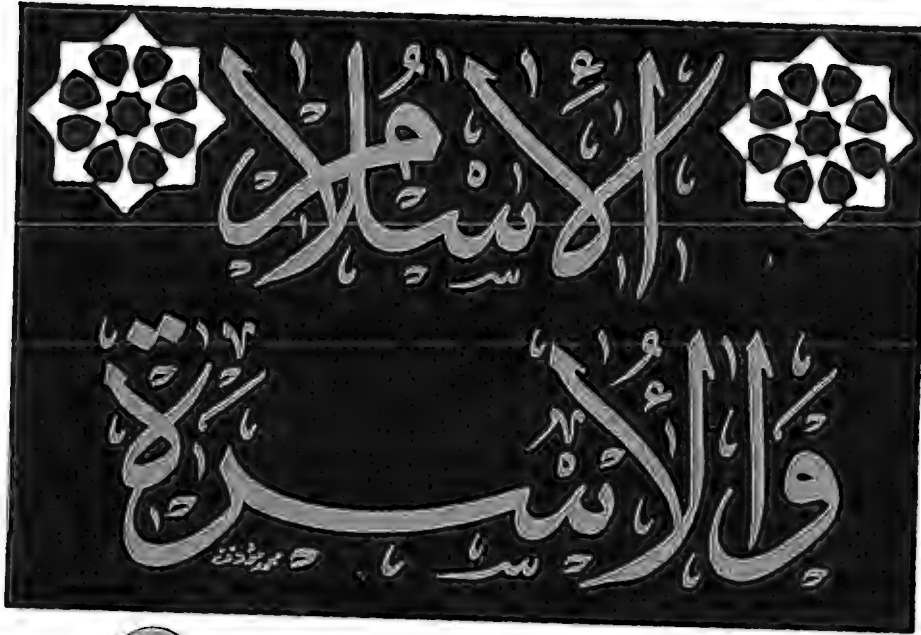 الأسلام
والأسرة